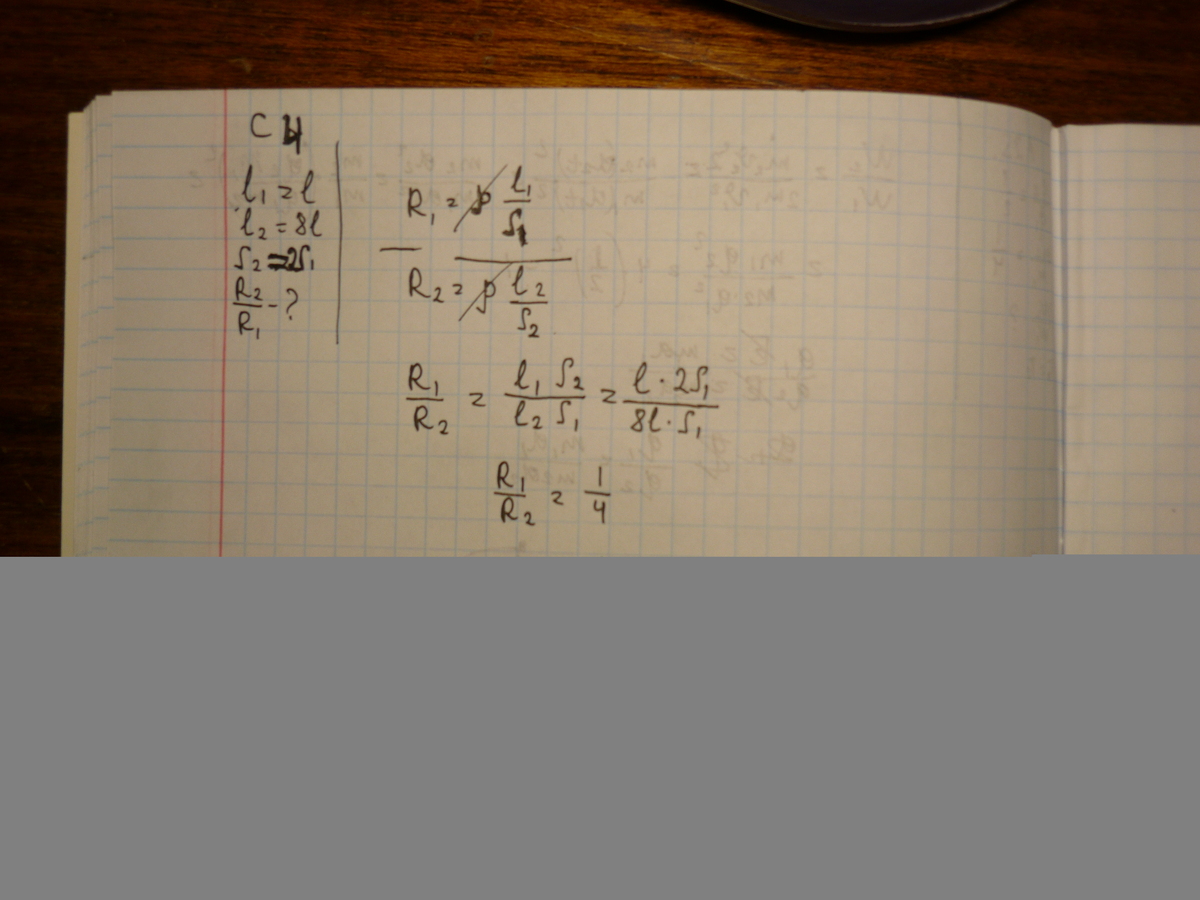 C 4
l₁ = l
l₂ = 8l
S₂ = 2S₁
R₂/R₁ - ?
R₁ = ρ l₁/S₁
R₂ = ρ l₂/S₂
R₁/R₂ = l₁ S₂/l₂ S₁ = l · 2S₁/8l · S₁
R₁/R₂ = 1/4